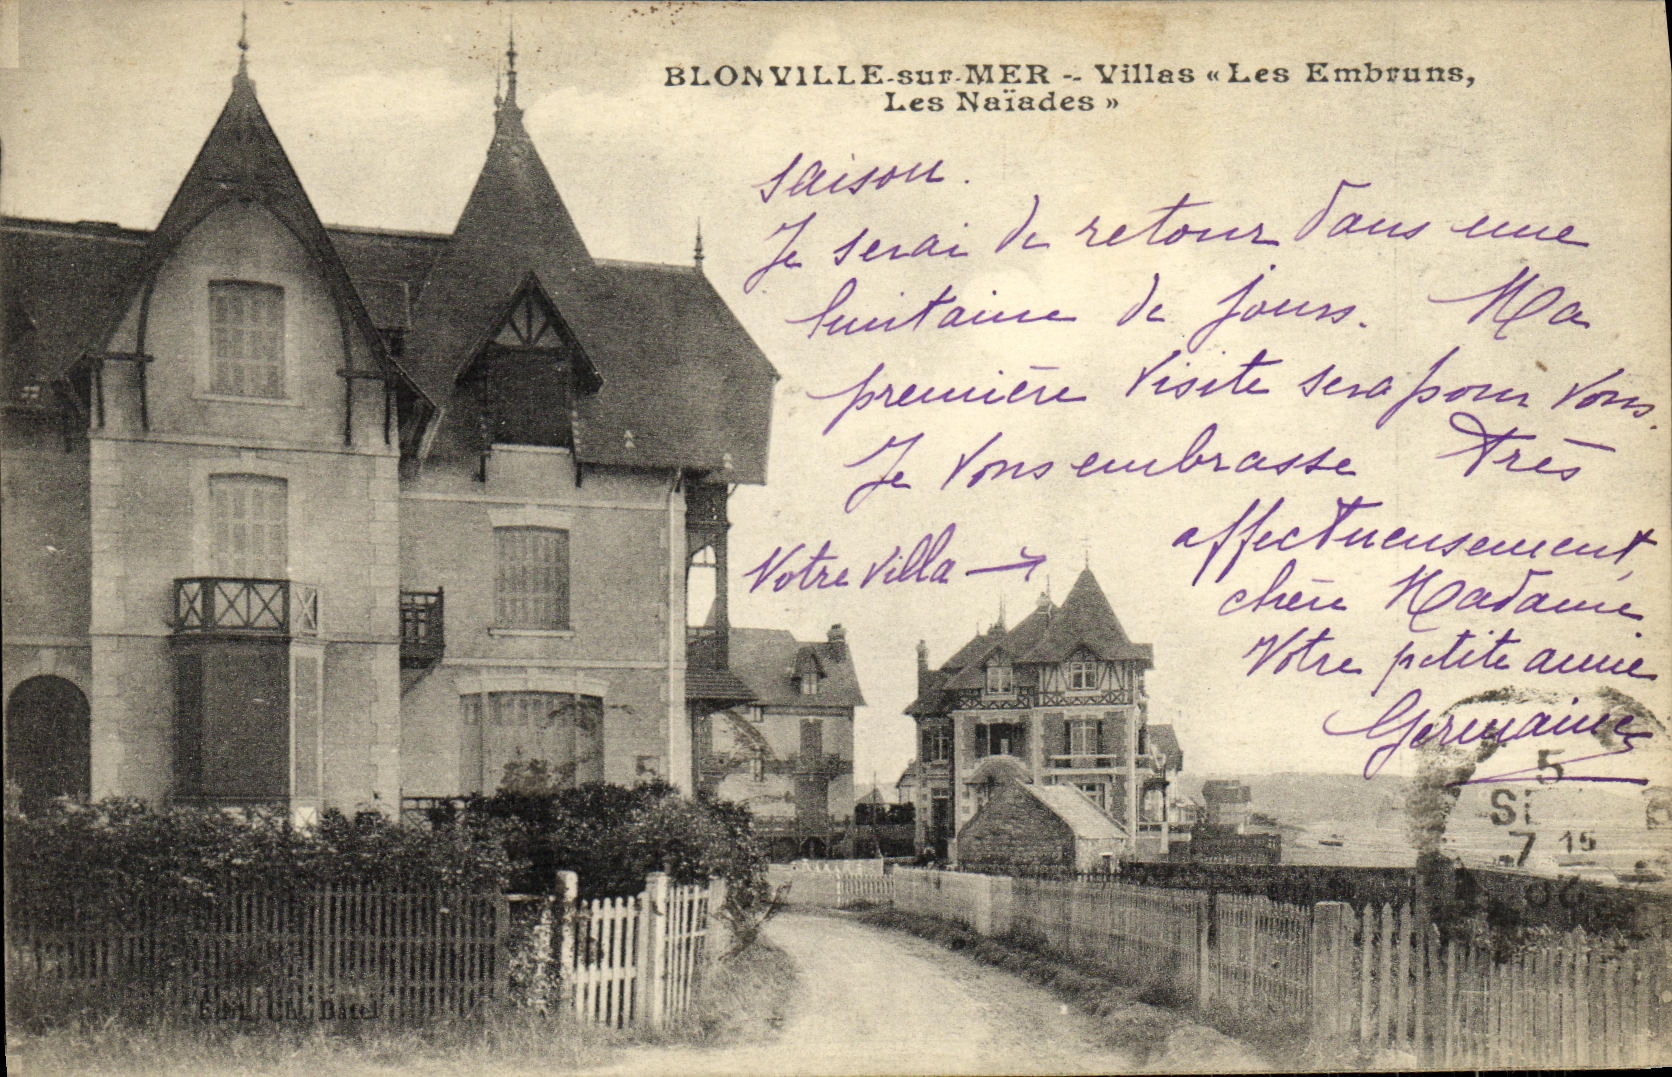 BLONVILLE-sur-MER -- Villas « Les Embruns,
Les Naïades »
saison.
Je serai de retour dans une
huitaine de jours. Ma
première visite sera pour vous.
Je vous embrasse très
affectueusement,
Votre villa →
chère Madame
Votre petite amie
Germaine
5
7 15
Edit. Ch. Batel